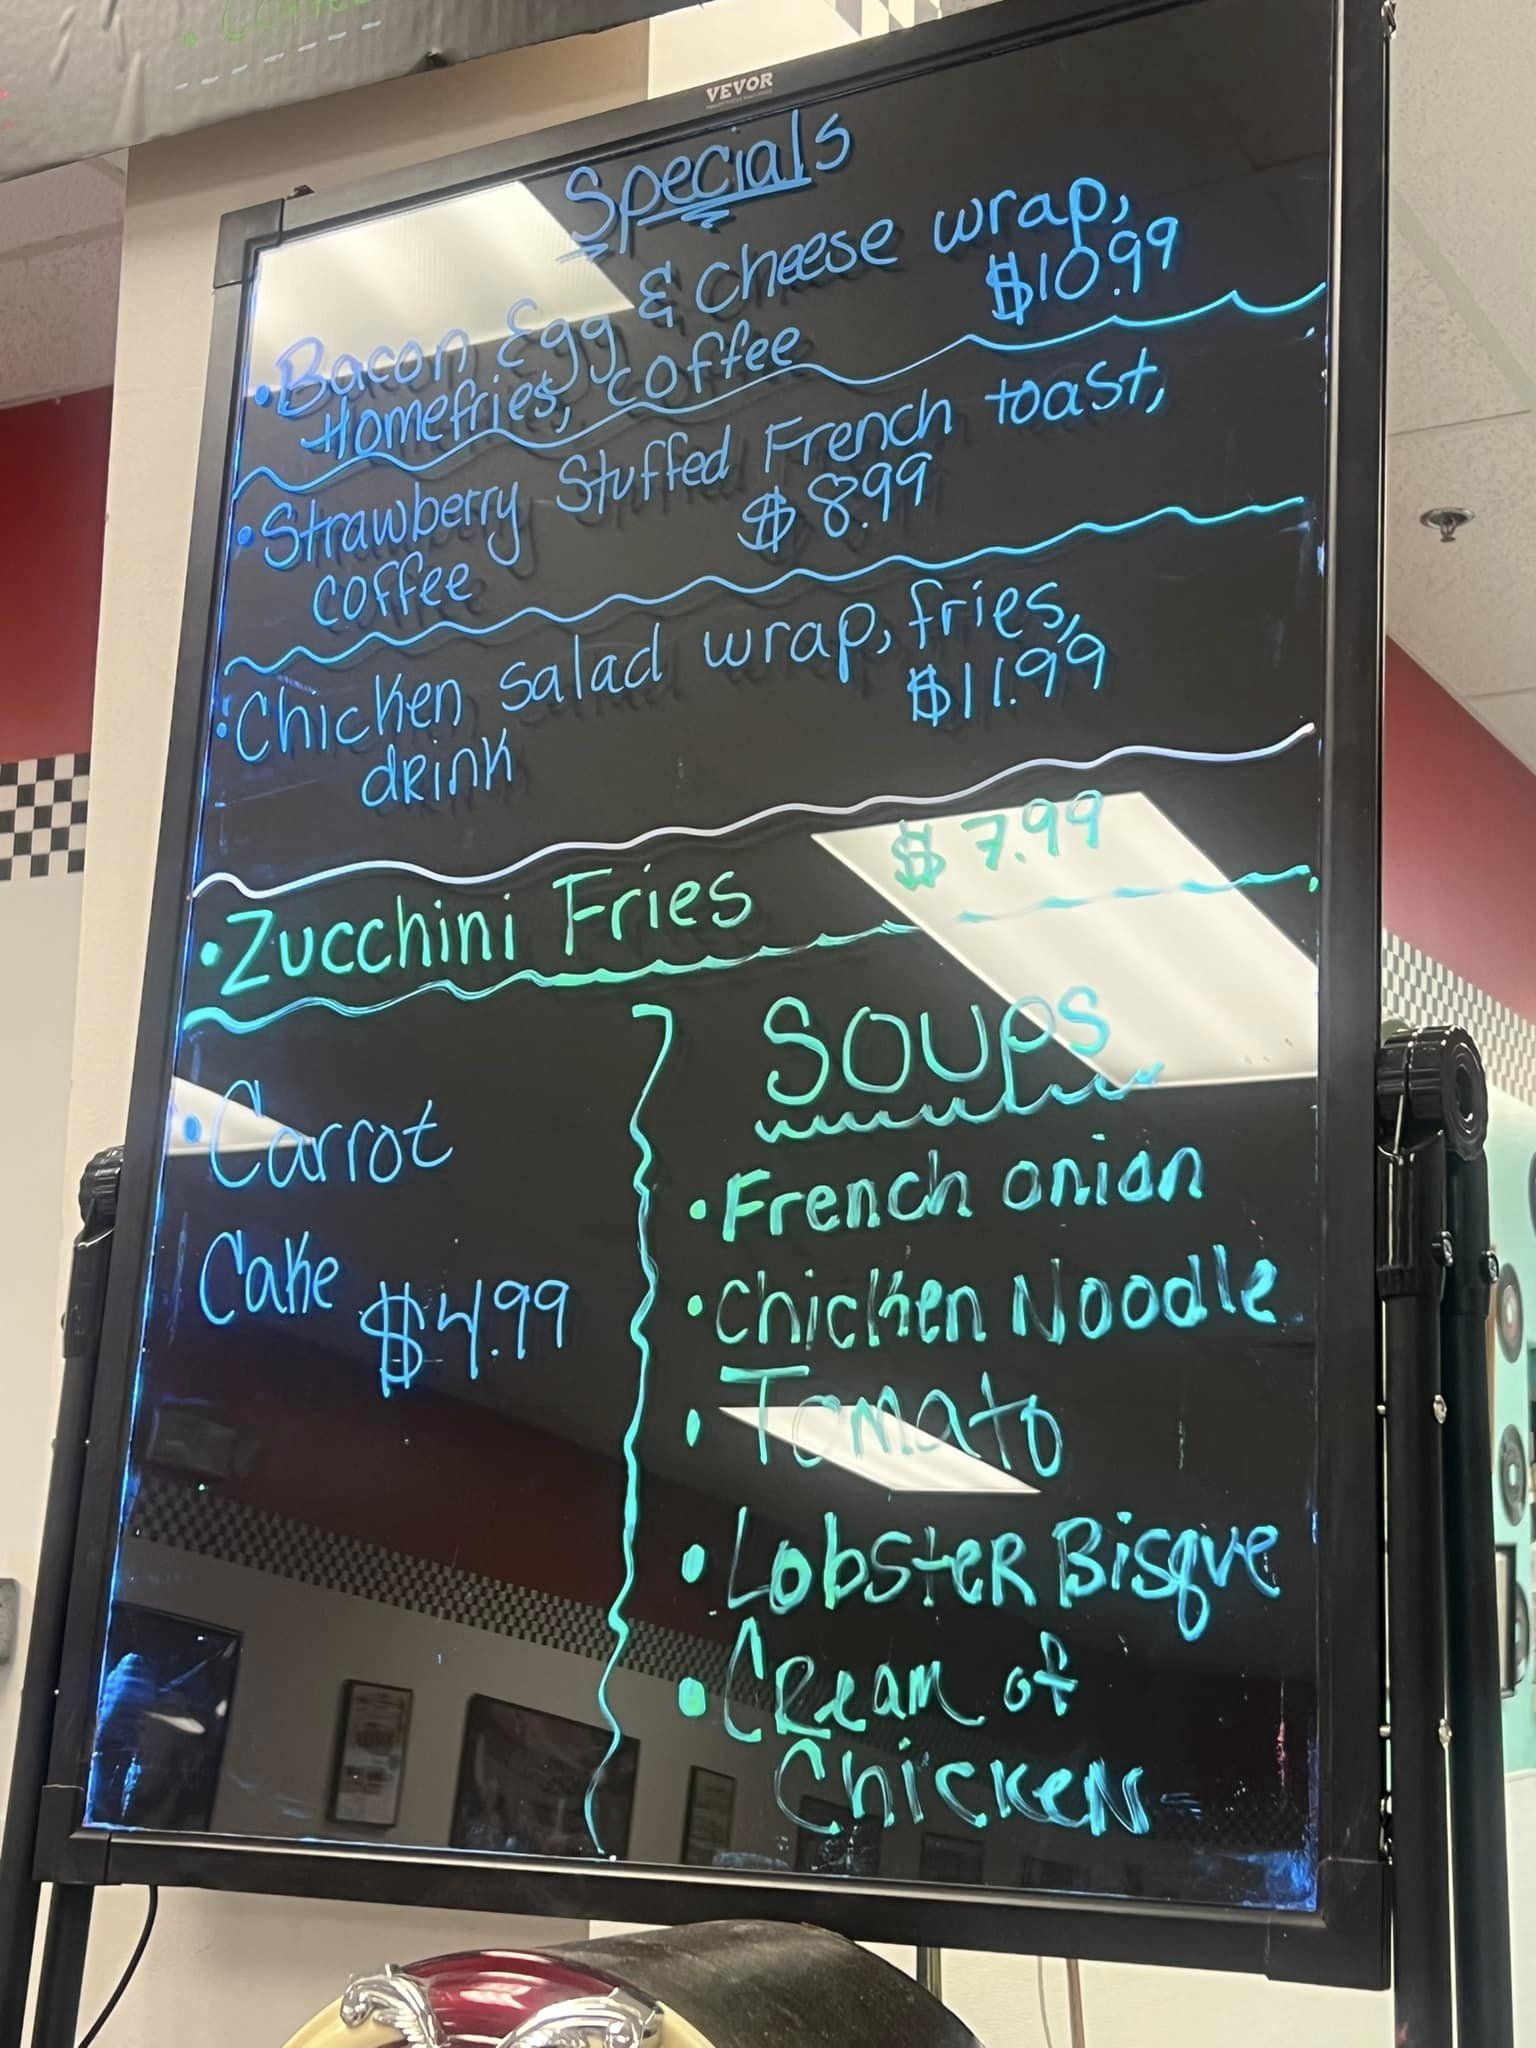 VEVOR
Specials
• Bacon Egg & Cheese wrap,
Homefries, coffee $10.99
• Strawberry Stuffed French toast,
coffee $8.99
• Chicken salad wrap, fries,
drink $11.99
• Zucchini Fries $7.99
• Carrot
Cake $4.99
Soups
• French onion
• Chicken Noodle
• Tomato
• Lobster Bisque
• Cream of
Chicken